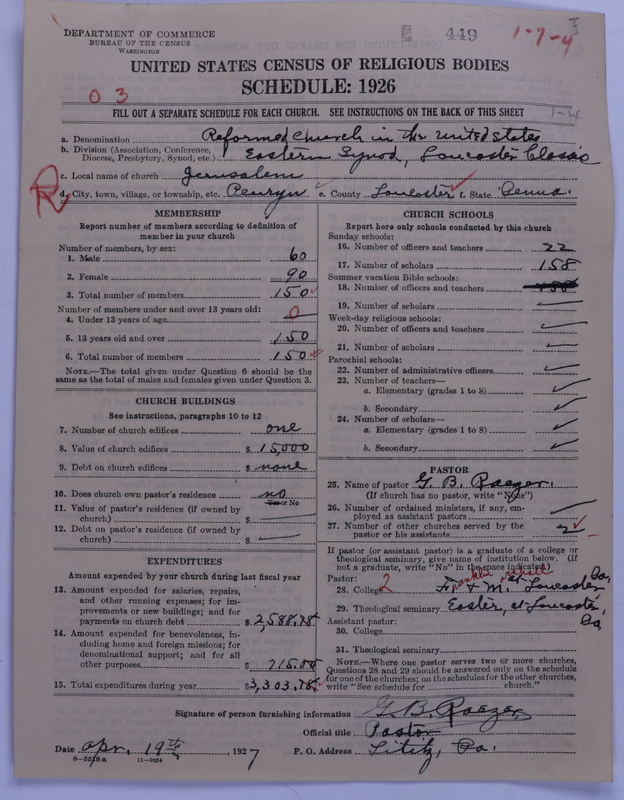 DEPARTMENT OF COMMERCE
BUREAU OF THE CENSUS
WASHINGTON
449
1-7-4
UNITED STATES CENSUS OF RELIGIOUS BODIES
SCHEDULE: 1926
03
FILL OUT A SEPARATE SCHEDULE FOR EACH CHURCH. SEE INSTRUCTIONS ON THE BACK OF THIS SHEET
1-4
a. Denomination Reformed Church in the United States
b. Division (Association, Conference, Diocese, Presbytery, Synod, etc.) Eastern Synod, Lancaster Classis
c. Local name of church Jerusalem
R
d. City, town, village, or township, etc. Penryn e. County Lancaster f. State Penna.
MEMBERSHIP
Report number of members according to definition of
member in your church
Number of members, by sex:
1. Male 60
2. Female 90
3. Total number of members 150
Number of members under and over 13 years old:
4. Under 13 years of age 0
5. 13 years old and over 150
6. Total number of members 150
NOTE.—The total given under Question 6 should be the
same as the total of males and females given under Question 3.
CHURCH BUILDINGS
See instructions, paragraphs 10 to 12
7. Number of church edifices one
8. Value of church edifices $ 15,000
9. Debt on church edifices $ none
10. Does church own pastor's residence no
Yes or No
11. Value of pastor's residence (if owned by
church) $
12. Debt on pastor's residence (if owned by
church) $
EXPENDITURES
Amount expended by your church during last fiscal year
13. Amount expended for salaries, repairs,
and other running expenses; for im-
provements or new buildings; and for
payments on church debt $ 2,588.78
14. Amount expended for benevolences, in-
cluding home and foreign missions; for
denominational support; and for all
other purposes $ 715.00
15. Total expenditures during year $ 3,303.78
CHURCH SCHOOLS
Report here only schools conducted by this church
Sunday schools:
16. Number of officers and teachers 22
17. Number of scholars 158
Summer vacation Bible schools:
18. Number of officers and teachers 158
19. Number of scholars
Week-day religious schools:
20. Number of officers and teachers
21. Number of scholars
Parochial schools:
22. Number of administrative officers
23. Number of teachers—
a. Elementary (grades 1 to 8)
b. Secondary
24. Number of scholars—
a. Elementary (grades 1 to 8)
b. Secondary
PASTOR
25. Name of pastor G. B. Raezer.
(If church has no pastor, write "None")
26. Number of ordained ministers, if any, em-
ployed as assistant pastors
27. Number of other churches served by the
pastor or his assistants 2
If pastor (or assistant pastor) is a graduate of a college or
theological seminary, give name of institution below. (If
not a graduate, write "No" in the space indicated)
Pastor:
2 Franklin
28. College F. & M. at Lancaster Pa.
29. Theological seminary Easter, at Lancaster, Pa,
Assistant pastor:
30. College
31. Theological seminary
NOTE.—Where one pastor serves two or more churches,
Questions 28 and 29 should be answered only on the schedule
for one of the churches; on the schedules for the other churches,
write "See schedule for church."
Signature of person furnishing information G. B. Raezer
Official title Pastor
Date Apr. 19th, 1927 P. O. Address Lititz, Pa.
8-5518a 11-9264